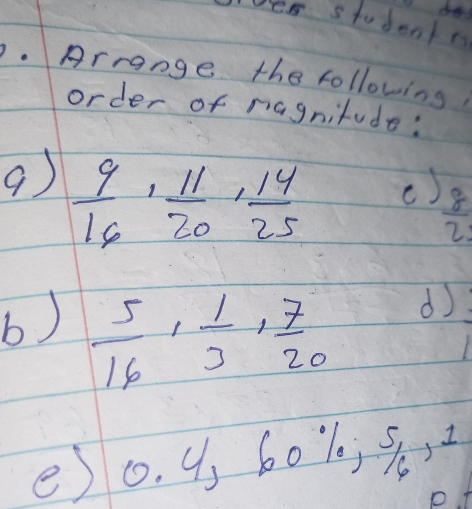 student
Arrange the following
order of magnitude:
a) 9/16, 11/20, 14/25
c) 8/2
b) 5/16, 1/3, 7/20
d)
e) 0.4, 60%, 5/6, 1